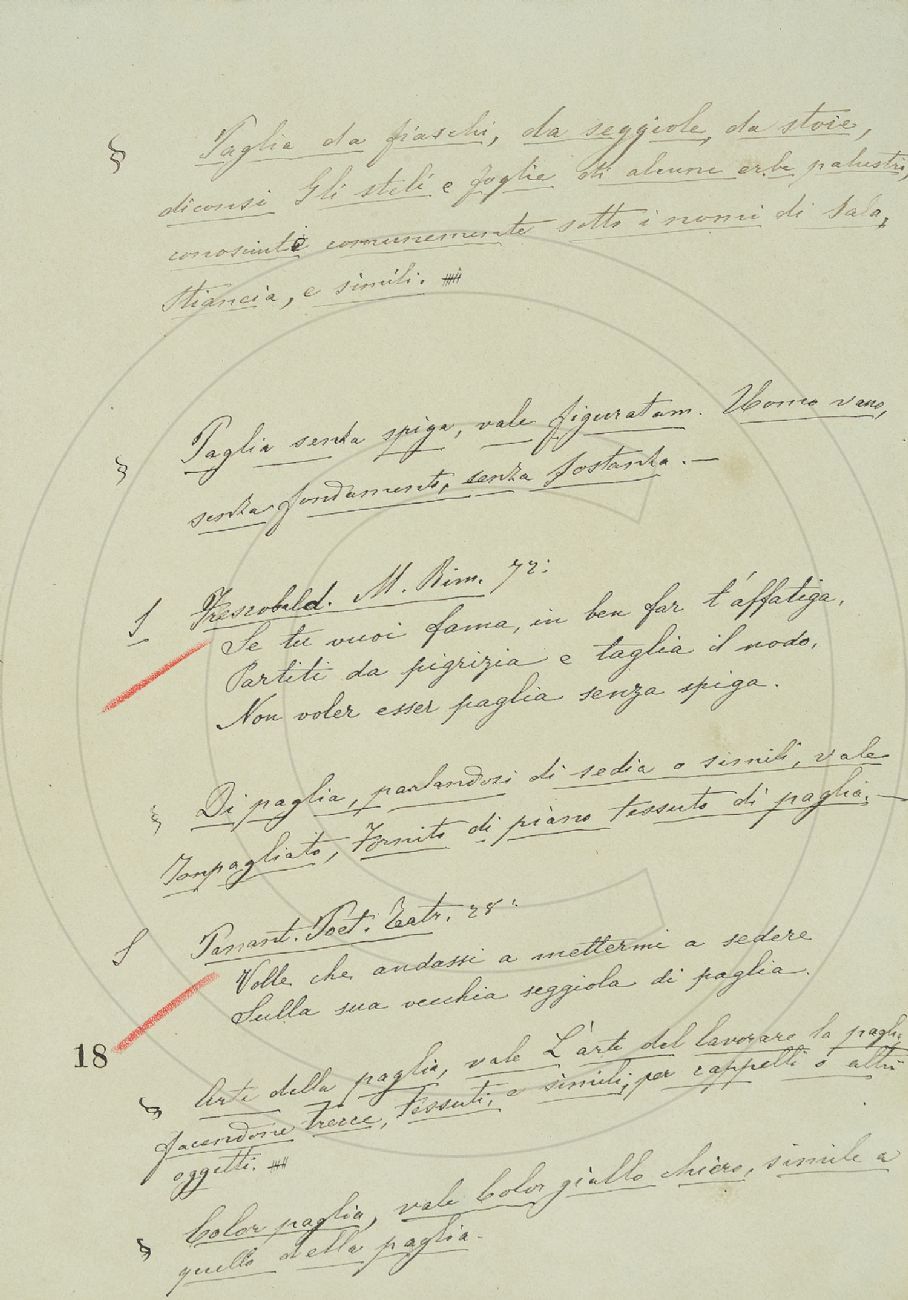 § Paglia da fiaschi, da seggiole, da stoie,
diconsi Gli steli e foglie di alcune erbe palustri,
conosciute comunemente sotto i nomi di Sala,
Stiancia, e simili.
§ Paglia senza spiga, vale figuratam. Uomo vano,
senza fondamento, senza sostanza. —
§ Frescobald. M. Rim. 72:
Se tu vuoi fama, in ben far t'affatiga,
Partiti da pigrizia e taglia il nodo,
Non voler esser paglia senza spiga.
§ Di paglia, parlandosi di sedia o simili, vale
Impagliato, Fornito di piano tessuto di paglia. —
§ Panant. Poet. Teatr. 28:
Volle che andassi a mettermi a sedere
Sulla sua vecchia seggiola di paglia.
18
§ Arte della paglia, vale L'arte del lavorare la paglia,
facendone trecce, tessuti, e simili, per cappelli o altri
oggetti.
§ Color paglia, vale Color giallo chiaro, simile a
quello della paglia.